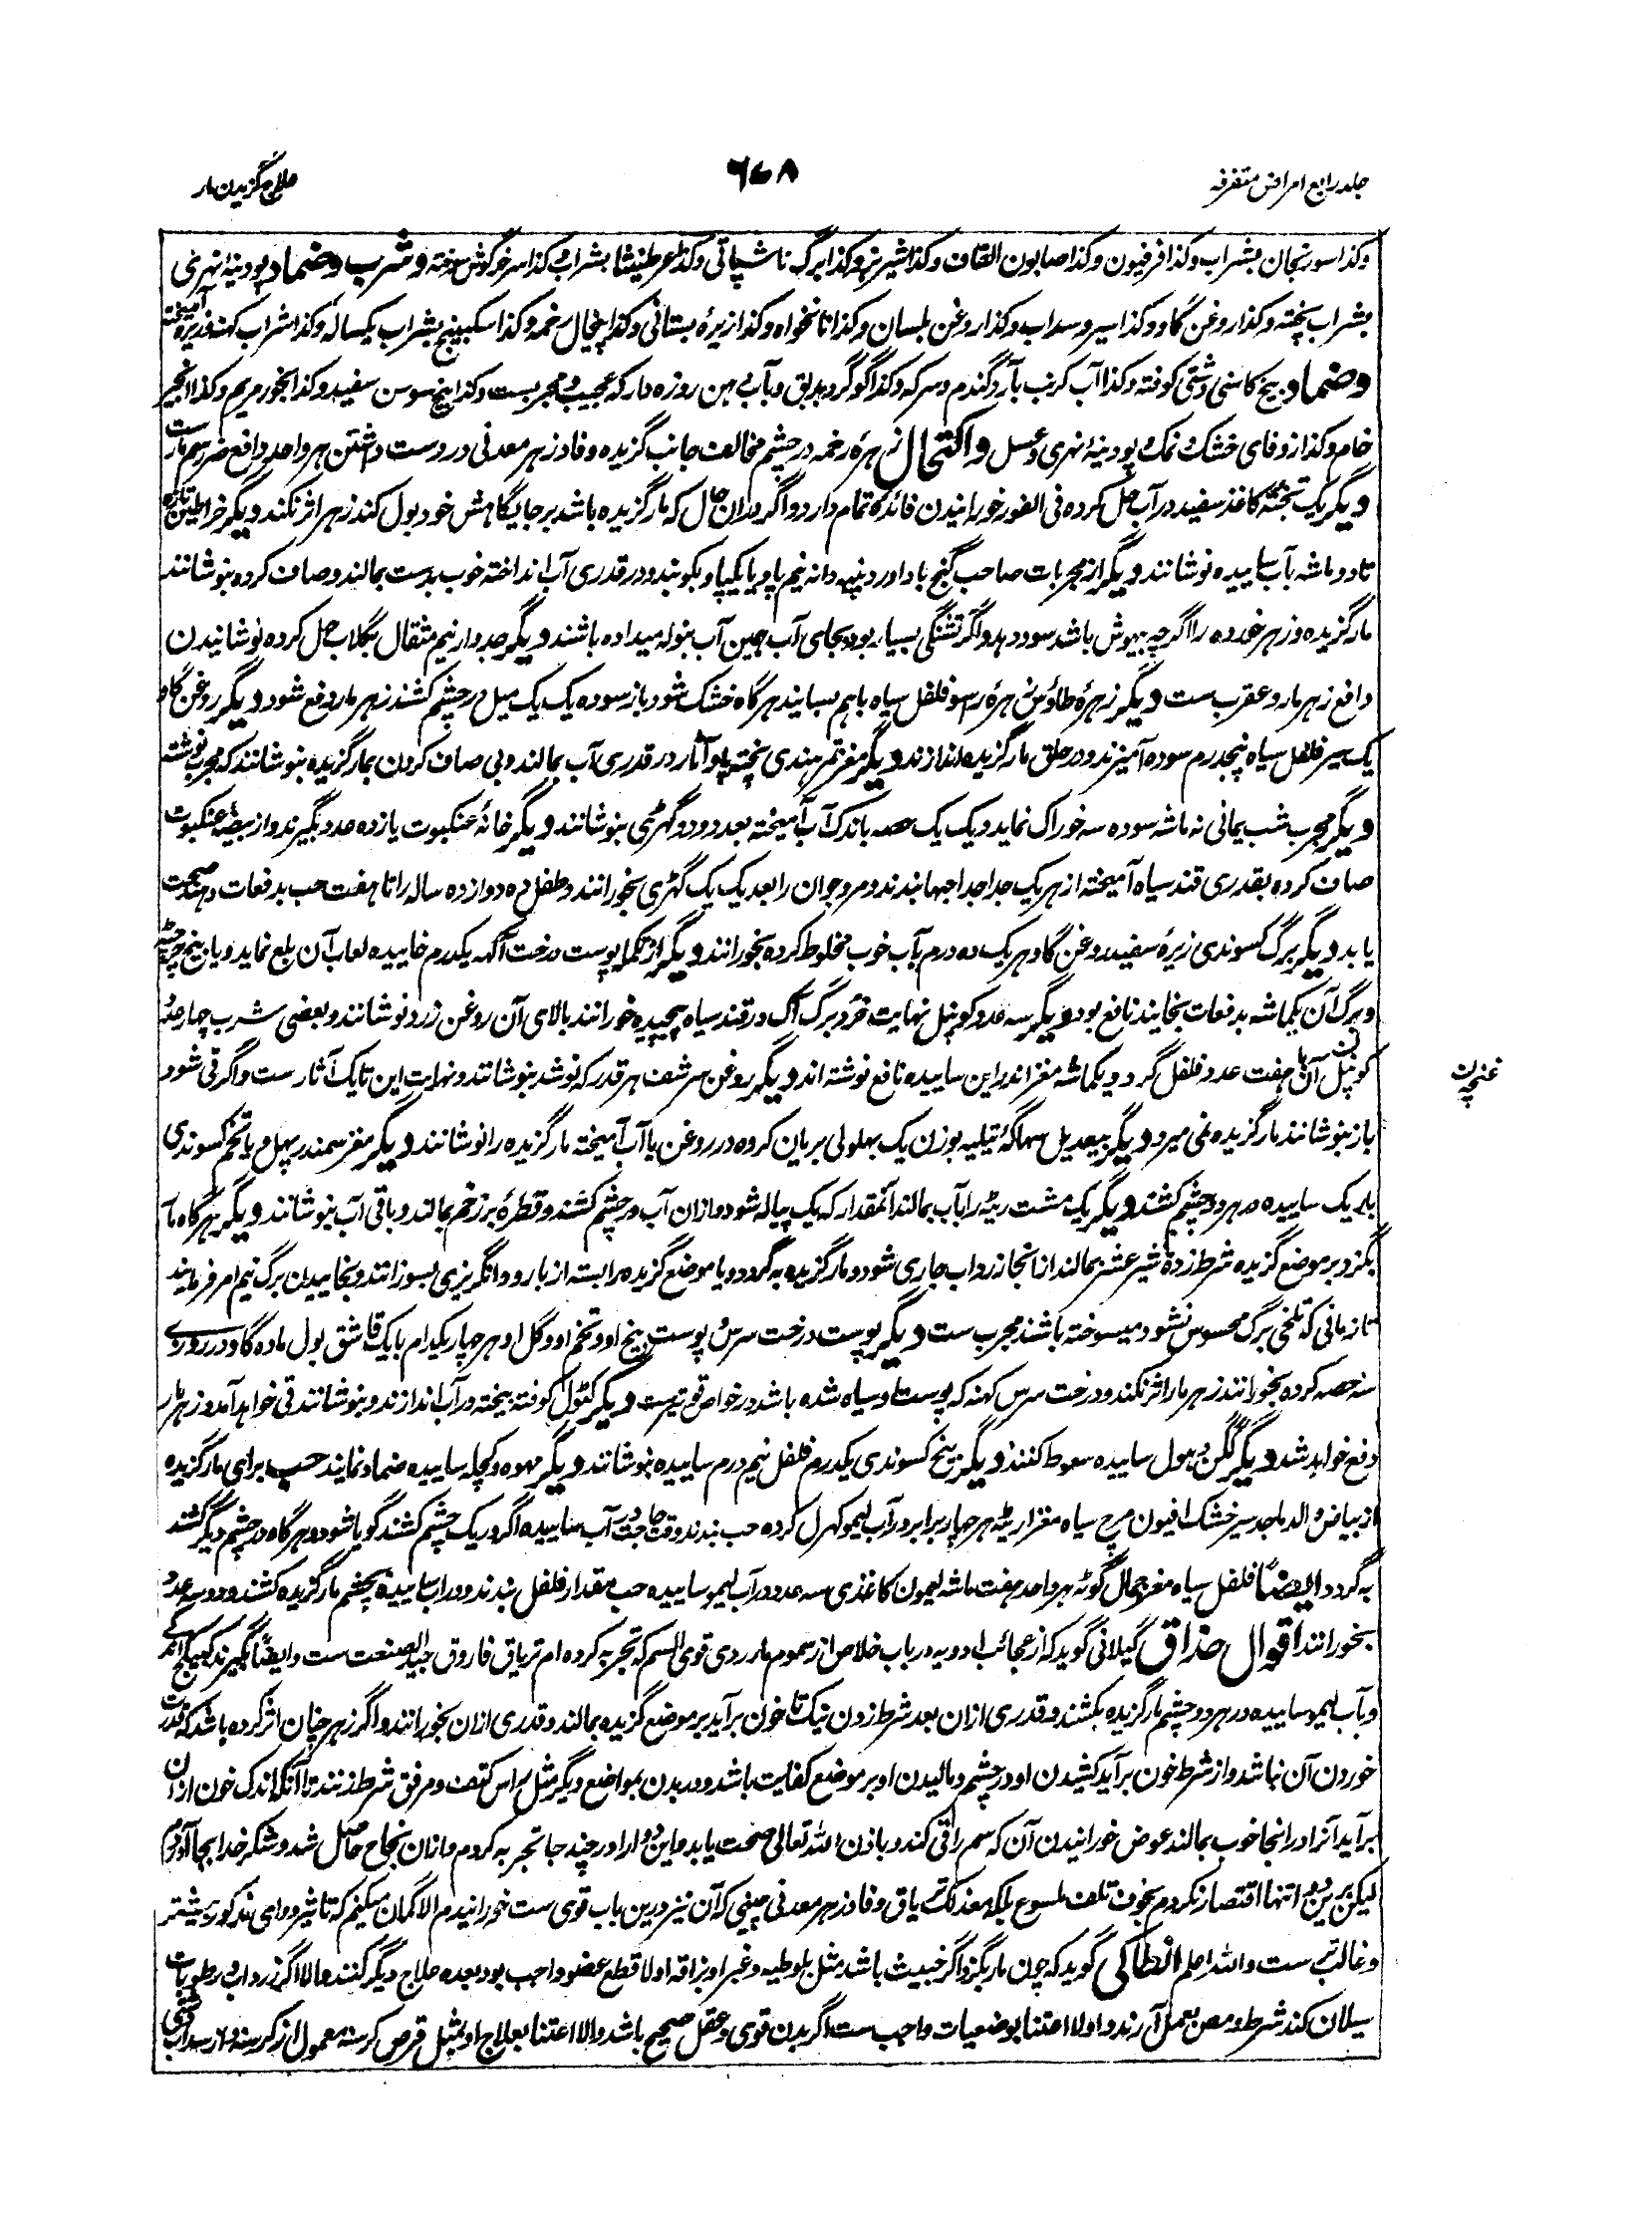 جلد رابع امراض متفرقه
۶۷۸
علاج گزیدن مار
وکذا سورنجان بشراب وکذا فرفیون وکذا صابون القاف وکذا شیر بز وکذا برگ ناشپاتی وکذا بشراب وکذا سر خرگوش سوخته و شرب و ضماد پودینهٔ نهری
بشراب پخته وکذا روغن گاو وکذا سیر و سداب وکذا روغن بلسان وکذا نانخواه وکذا زیرهٔ بستانی وکذا پیخال رخمه وکذا سکبینج بشراب یکساله وکذا شراب کهنه آمیخته
و ضماد بیخ کاسنی دشتی کوفته وکذا آب کرنب بآرد گندم و سرکه وکذا گوگرد بریق و بآب دهن روزه دار که عجیب و مجربست وکذا بیخ سوسن سفید وکذا بخور مریم وکذا انجیر
خام وکذا زوفای خشک و نمک و پودینهٔ نهری و عسل و اکتحال زهرهٔ رخمه در چشم مخالف جانب گزیده و فادزهر معدنی در دست داشتن هر واحد دافع ضرر سم مارست
دیگر یک تخته کاغذ سفید در آب حل کرده فی الفور خورانیدن فائدهٔ تمام دارد و اگر دران حال که مار گزیده باشد بر جایگاهش خود بول کند زهر اثر نکند دیگر خراطین تازه
تا دو ماشه بآب ساییده نوشانند دیگر از مجربات صاحب گنج باد آورد پنبه دانه نیم پاو یا یکپاو بکوبند و در قدری آب انداخته خوب بدست بمالند و صاف کرده بنوشانند
مارگزیده و زهر خورده را اگرچه بیهوش باشد سود دهد و اگر تشنگی بسیار بود بجای آب همین آب بنوله میداده باشند دیگر جدوار نیم مثقال بگلاب حل کرده نوشانیدن
دافع زهر مار و عقرب ست دیگر زهرهٔ طاؤس زهرهٔ رهو فلفل سیاه باهم بسایند هرگاه خشک شود باز سوده یک یک میل در چشم کشند زهر مار دفع شود دیگر روغن گاو
یک سیر فلفل سیاه پنجدرم سوده آمیزند و در حلق مارگزیده اندازند دیگر مغز تمر هندی پخته پاو آثار در قدری آب بمالند و بی صاف کردن بمارگزیده بنوشانند که مجرب نوشته
دیگر مجرب شب یمانی نه ماشه سوده سه خوراک نماید و یک یک حصه باندک آب آمیخته بعد دو دو گهڑی بنوشانند دیگر خانهٔ عنکبوت یازده عدد بگیرند و از بیضهٔ عنکبوت
صاف کرده بقدری قند سیاه آمیخته از هر یک جدا جدا حبها بندند و مرد جوان را بعد یک یک گهڑی بخورانند و طفل ده دوازده ساله را تا هفت حب بدفعات دهند صحت
یابد دیگر برگ کسوندی زیرهٔ سفید روغن گاو هر یک ده درم بآب خوب مخلوط کرده بخورانند دیگر از تکملا پوست درخت آکهه یکدرم خاییده لعاب آن بلع نماید و یا بیخ
و برگ آن یکماشه بدفعات بخایند نافع بود دیگر سه عدد کوپنل نهایت خرد برگ آک در قند سیاه پیچیده خورانند بالای آن روغن زرد نوشانند و بعضی شرب چار عدد
کونپل آن با هفت عدد فلفل گرد و یکماشه مغز اندراین ساییده نافع نوشته اند دیگر روغن سرشف هر قدر که نوشد بنوشانند و نهایت این تا یک آثار ست و اگر قی شود
غنچه
باز بنوشانند مارگزیده نمی میرد دیگر بیعدیل سهاگهٔ تیلیه بوزن یک بهلولی بریان کرده در روغن یا آب آمیخته مارگزیده را نوشانند دیگر مغز سمندر پهل و یا تخم کسوندی
باریک ساییده در هر دو چشم کشند دیگر یک مشت ریٹه را بآب بمالند آنمقدار که یک پیاله شود و ازان آب در چشم کشند و قطرهٔ بر زخم بمالند و باقی آب بنوشانند دیگر هرگاه مار
بگزد بر موضع گزیده شرط زده شیر عشر بمالند از انجا زرداب جاری شود و مارگزیده به گردد و یا موضع گزیده را بسته از باروت انگریزی بسوزانند و بخاییدن برگ نیم امر فرمایند
تا زمانی که تلخی برگ محسوس نشود میسوخته باشند مجرب ست دیگر پوست درخت سرس و پوست بیخ او و تخم او و گل او هر چهار یکدام با یک قاشق بول ماده گاو در روزی
سه حصه کرده بخورانند زهر مار اثر نکند و درخت سرس کهنه که پوست او سیاه شده باشد در خواص قویترست دیگر کٹول کوفته بیخته در آب اندازند و بنوشانند قی خواهد آمد و زهر مار
دفع خواهد شد دیگر گلگن دهول ساییده سعوط کنند دیگر بیخ کسوندی یکدرم فلفل نیم درم ساییده بنوشانند دیگر مهوه و کچله ساییده ضماد نمایند حب برای مارگزیده
از بیاض والد ماجد سیر خشک افیون مرچ سیاه مغز ریٹه هر چهار برابر در آب لیمو کهرل کرده حب بندند وقت حاجت در آب ساییده اگر در یک چشم کشند گویا شود و هرگاه در چشم دیگر کشند
به گردد ایضاً فلفل سیاه مغز جمال گوٹه هر واحد هفت ماشه لیمون کاغذی سه عدد در آب لیمو ساییده حب مقدار فلفل بندند و در آب ساییده بچشم مارگزیده کشند و دو سه عدد
بخورانند اقوال حذاق گیلانی گوید که از عجائب ادویه در باب خلاص از سموم مار ردی قوی السم که تجربه کرده ام تریاق فاروق جید الصنعت ست و ایضاً بگیرند
و بآب لیمو ساییده در هر دو چشم مارگزیده بکشند و قدری ازان بعد شرط زدن نیک تا خون برآید بر موضع گزیده بمالند و قدری ازان بخورانند و اگر زهر چنان اثر کرده باشد که قدرت
خوردن آن نباشد و از شرط خون برآید کشیدن او در چشم و مالیدن او بر موضع کفایت باشد و در بدن بمواضع دیگر مثل راس کتف و مرفق شرط زنند تا آنکه اندک خون ازان
برآید آنرا در انجا خوب بمالند عوض خورانیدن آن که سم را قی کند و باذن الله تعالی صحت یابد و این دوا را در چند جا تجربه کردم و ازان نجاح حاصل شد و شکر خدا بجا آوردم
لیکن برین دوا تنها اقتصار نکردم بخوف تلف ملسوع بلکه معذلک تریاق و فادزهر معدنی چینی که آن نیز درین باب قوی ست خورانیدم الا گمان میکنم که تاثیر دوای مذکور بیشتر
و غالب ترست والله اعلم انطاکی گوید که چون مار بگزد اگر خبیث باشد مثل بلوطیه و غبرا و بزاقه اولا قطع عضو واجب بود بعده علاج دیگر کنند و الا اگر زرداب و رطوبات
سیلان کند شرط و مص بعمل آرند و اولا اعتنا بوضعیات واجب ست اگر بدن قوی و عقل صحیح باشد والا اعتنا بعلاج او بمثل قرص کرسنه معمول از کرسنه و سداب